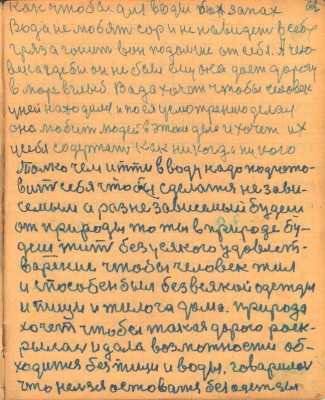 как чтобы для воды был запах
Вода не любит сор и ненавидит в себе
грязь гонит вон подальше от себя. А чело
века где бы он не был ему она дает дорогу
в море вглыб Вада хочет чтобы человек
у ней находился и по ея усмотрению делал
она любит людей в этом деле и хочет их
у себя содержать как никогда никого
Только чем итти в воду надо подгото-
вить себя чтобы сделатся незави-
семым а раз не зависемый будеш
от природы то ты в природе бу-
деш жить без усякого здовлет-
варение чтобы человек жил
и способен был без всякой одежды
и пищи и жилога дома. природа
хочет чтобы такая дорога раск-
рылась и дала возможности об-
ходится без пищи и воды. говарилось
что нельзя остоватся без одежды